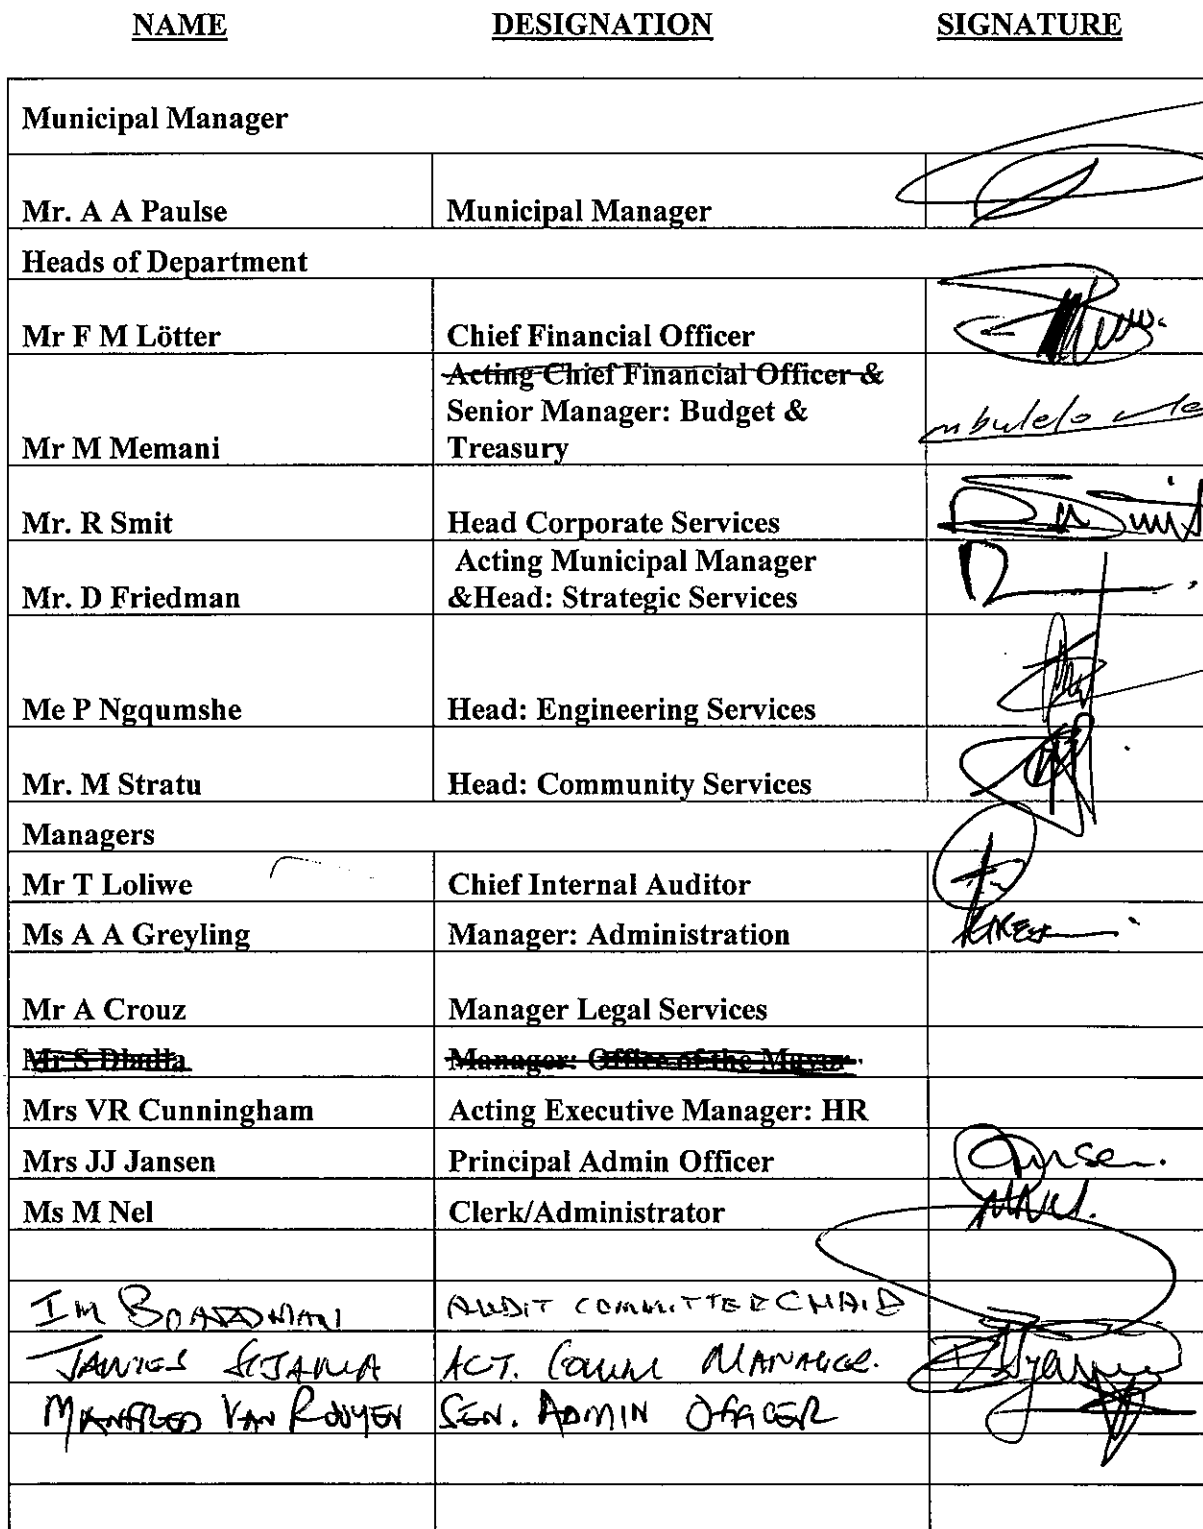 NAME DESIGNATION SIGNATURE
Municipal Manager
Mr. A A Paulse Municipal Manager
Heads of Department
Mr F M Lötter Chief Financial Officer
Acting Chief Financial Officer &
Senior Manager: Budget &
Mr M Memani Treasury mbulelo
Mr. R Smit Head Corporate Services
Acting Municipal Manager
Mr. D Friedman &Head: Strategic Services
Me P Ngqumshe Head: Engineering Services
Mr. M Stratu Head: Community Services
Managers
Mr T Loliwe Chief Internal Auditor
Ms A A Greyling Manager: Administration
Mr A Crouz Manager Legal Services
Mr S Manager: Office of the Mayor
Mrs VR Cunningham Acting Executive Manager: HR
Mrs JJ Jansen Principal Admin Officer
Ms M Nel Clerk/Administrator
IM BOARDMAN AUDIT COMMITTEE CHAIR
JAMES ACT. COMM MANAGER.
MANFRED VAN ROOYEN SEN. ADMIN OFFICER